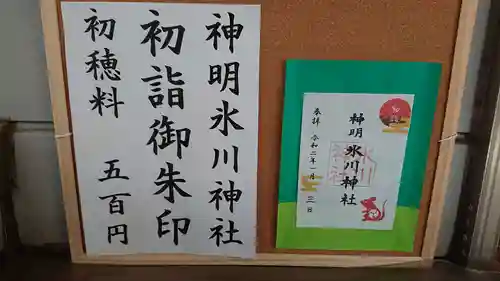 神明氷川神社
初詣御朱印
初穂料 五百円
神明氷川神社
奉拝 令和二年一月三日